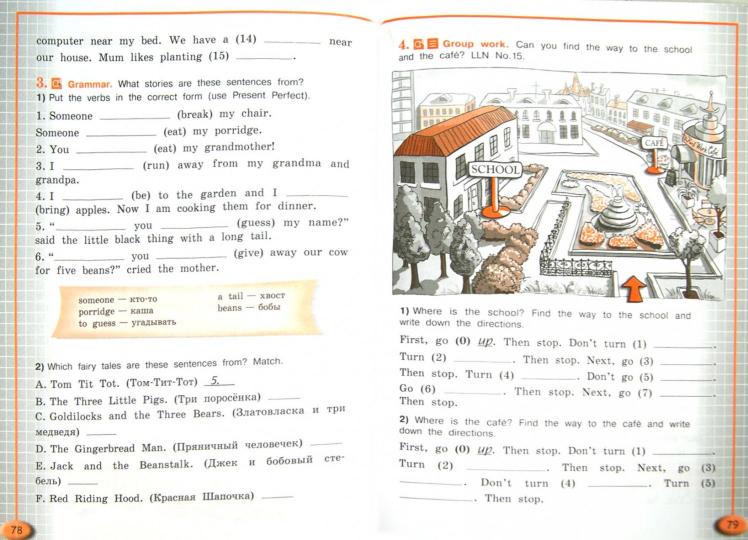 computer near my bed. We have a (14) __________ near
our house. Mum likes planting (15) __________.
3. Grammar. What stories are these sentences from?
1) Put the verbs in the correct form (use Present Perfect).
1. Someone __________ (break) my chair.
Someone __________ (eat) my porridge.
2. You __________ (eat) my grandmother!
3. I __________ (run) away from my grandma and
grandpa.
4. I __________ (be) to the garden and I __________
(bring) apples. Now I am cooking them for dinner.
5. “__________ you __________ (guess) my name?”
said the little black thing with a long tail.
6. “__________ you __________ (give) away our cow
for five beans?” cried the mother.
someone — кто-то
porridge — каша
to guess — угадывать
a tail — хвост
beans — бобы
2) Which fairy tales are these sentences from? Match.
A. Tom Tit Tot. (Том-Тит-Тот) 5.
B. The Three Little Pigs. (Три поросёнка) _____
C. Goldilocks and the Three Bears. (Златовласка и три
медведя) _____
D. The Gingerbread Man. (Пряничный человечек) _____
E. Jack and the Beanstalk. (Джек и бобовый сте-
бель) _____
F. Red Riding Hood. (Красная Шапочка) _____
78
4. Group work. Can you find the way to the school
and the café? LLN No.15.
SCHOOL
CAFÉ
1) Where is the school? Find the way to the school and
write down the directions.
First, go (0) up. Then stop. Don't turn (1) __________.
Turn (2) __________. Then stop. Next, go (3) __________.
Then stop. Turn (4) __________. Don't go (5) __________.
Go (6) __________. Then stop. Next, go (7) __________.
Then stop.
2) Where is the café? Find the way to the café and write
down the directions.
First, go (0) up. Then stop. Don't turn (1) __________.
Turn (2) __________. Then stop. Next, go (3)
__________. Don't turn (4) __________. Turn (5)
__________. Then stop.
79